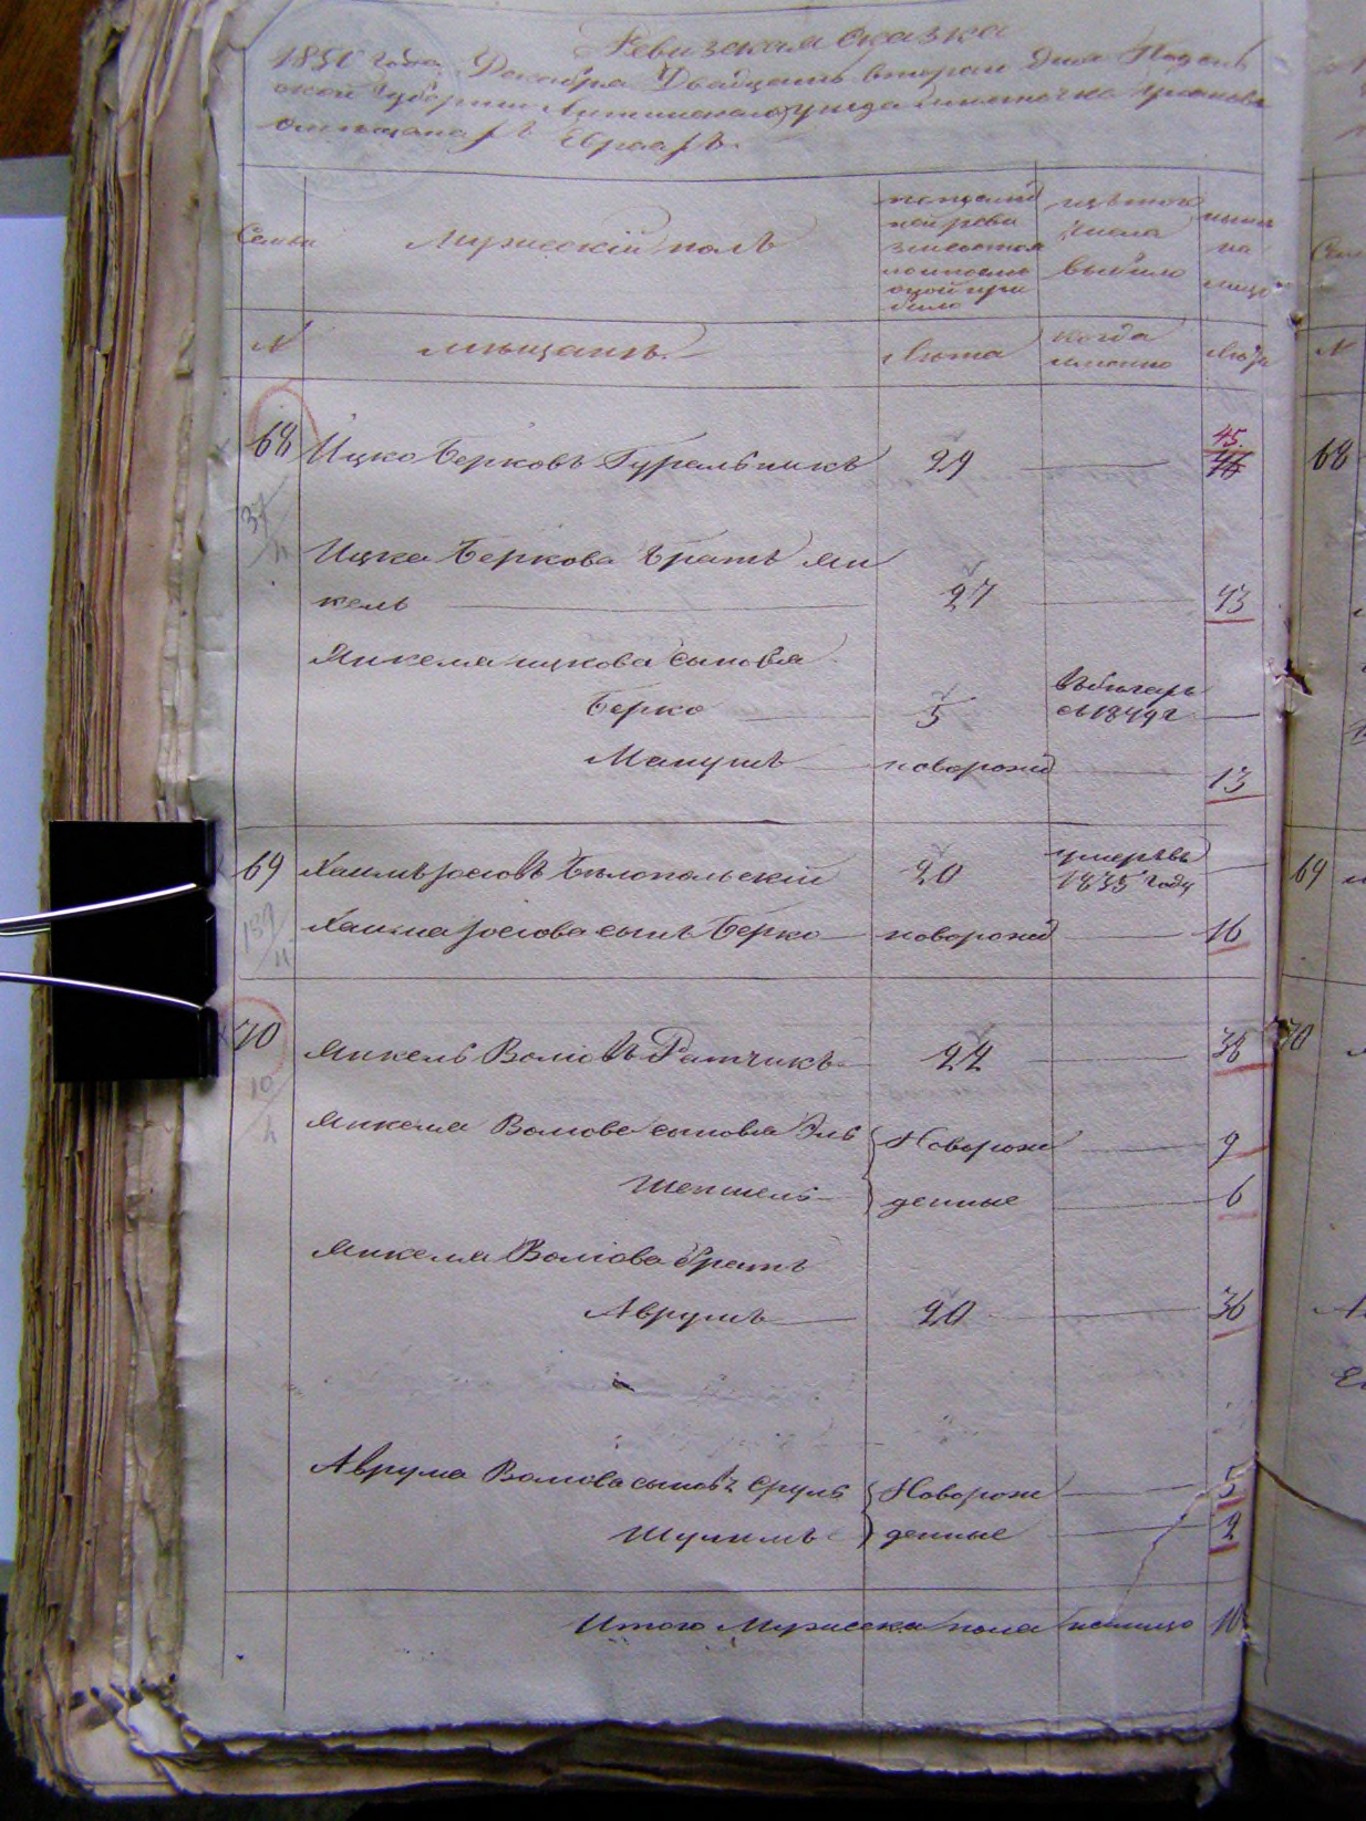 Ревизская сказка
1850 года Декабря Двадцать втораго дня Подоль
ской Губернии Литинскаго уезда
о мещанахъ Евреахъ.
Семьи
Мужескій полъ
по послед
ней реви
зіи состоя
ло и после
оной при
было
изъ того
числа
выбыло
ныне
на
лицо
N
мещане.
Лета
когда
именно
Лета
68
Ицко Берковъ Гуральникъ
29
45.
46
Ицка Беркова братъ Ян
кель
27
43
Янкеля ицкова сыновья
Берко
5
въ бегахъ
съ 1849 г
Манушъ
новорожд
13
69
Хаимъ Іосіовъ Белопольскій
20
умеръ въ
1835 году
Хаима Іосіова сынъ Берко
новорожд
16
70
Янкель Воліовъ Ратчикъ
22
38
Янкеля Воліова сыновья Эль
Новорож
9
Шепшель
денные
6
Янкеля Воліова братъ
Аврумъ
20
36
Аврума Воліова сыновъя Сруль
Новорож
5
Шулимъ
денные
2
Итого Мужеска пола налицо
10
68
69
70